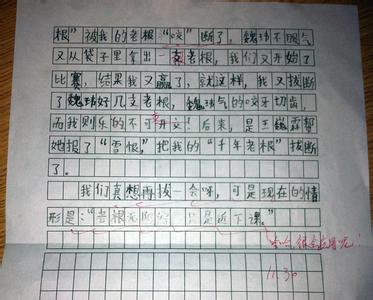 根”被我的老根“咬”断了，魏玮不服气
又从袋子里拿出一支老根，我们又开始了
比赛，结果我又赢了，就这样，我又拔断
了魏玮好几支老根，魏玮气的咬牙切齿，
而我则乐的不可开交！后来，是王 霖帮
她报了“雪根”，把我的“千年老根”拔断
了。
我们真想再拔一会呀，可是现在的情
形是：“老根无限好，只是近下课。”
哈哈，你会应用呢！
11.30